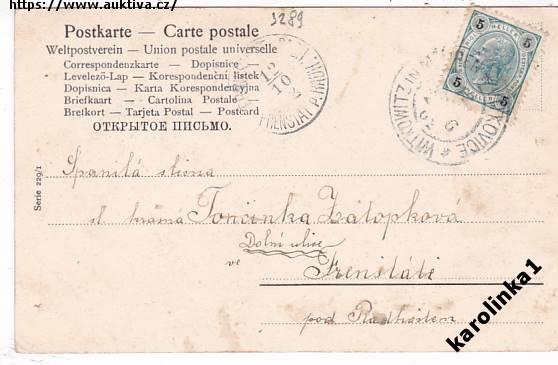 https://www.auktiva.cz/
3289
Postkarte — Carte postale
Weltpostverein — Union postale universelle
Correspondenzkarte — Dopisnice —
Levelező-Lap — Korespondenční listek
Dopisnica — Karta Korespondencyjna
Briefkaart — Cartolina Postale —
Brefkort — Tarjeta Postal — Postcard
ОТКРЫТОЕ ПИСЬМО.
5 5
5 5
FRENŠTÁT P. RADH.
10
WITKOWITZ IN MÄHREN
Serie 229/1
Spanilá slečna
sl
Tončinka Zátopková
Dolní ulice
ve
Frenštátě
pod Radhoštěm
karolinka1